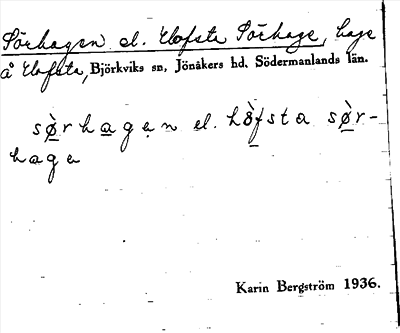 Sörhagen el. Hofsta Sörhage, hage
å Hofsta, Björkviks sn, Jönåkers hd. Södermanlands län.
sø̀rhagen el. hòfsta sø̀r-
hage
Karin Bergström 1936.